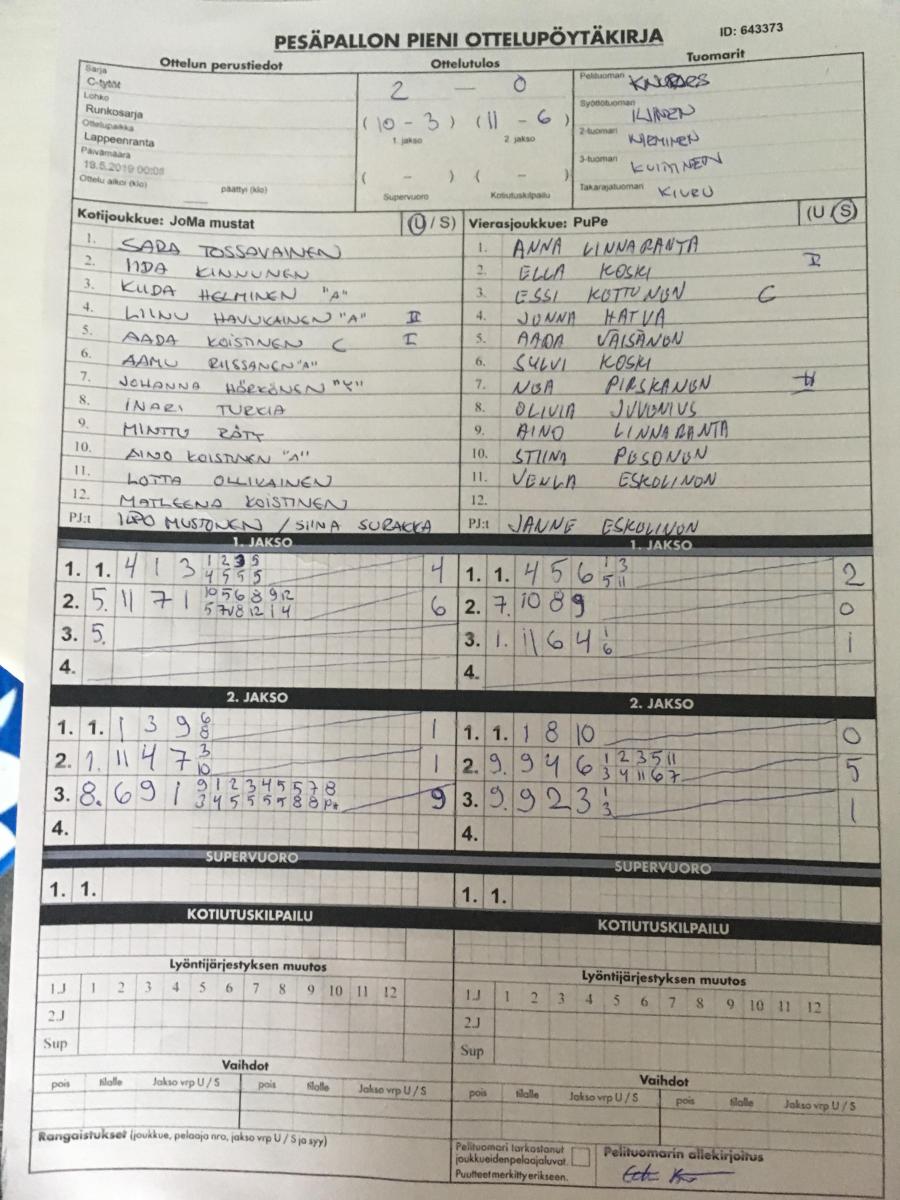 PESÄPALLON PIENI OTTELUPÖYTÄKIRJA ID: 643373
Ottelun perustiedot
Sarja
C-tytöt
Lohko
Runkosarja
Ottelupaikka
Lappeenranta
Päivämäärä
Ottelu alkoi (klo) päättyi (klo)
Ottelutulos
2 - 0
(10 - 3) (11 - 6)
1. jakso 2. jakso
( - ) ( - )
Supervuoro Kotiutuskilpailu
Tuomarit
Pelituomari
Syöttötuomari
2-tuomari NIEMINEN
3-tuomari
Takarajatuomari KIURU
Kotijoukkue: JoMa mustat (U / S)
1. SARA TOSSAVAINEN
2. IIDA KINNUNEN
3. HELMINEN "A"
4. LIINU HAVUKAINEN "A" II
5. AADA KOISTINEN C I
6. AAMU RIISSANEN "A"
7. JOHANNA HÖRKÖNEN "Y"
8. INARI TURKIA
9. MINTTU RÄTY
10. AINO KOISTINEN "A"
11. LOTTA OLLIKAINEN
12. MATLEENA KOISTINEN
PJ:t MUSTONEN / SIINA SURAKKA
Vierasjoukkue: PuPe (U / S)
1. ANNA LINNARANTA
2. ELLA KOSKI I
3. ESSI KOTTUNON C
4. JONNA HATVA
5. AADA VÄISÄNON
6. SYLVI KOSKI
7. NOA PIRSKANON II
8. OLIVIA JUVONIUS
9. AINO LINNARANTA
10. STIINA POSONON
11. VENLA ESKOLINON
12.
PJ:t JANNE ESKOLINON
1. JAKSO
1. 1. 4 1 3 1 2 3 5
4 5 5 5 4
2. 5. 11 7 1 10 5 6 8 9 12
5 7 8 12 1 4 6
3. 5.
4.
1. JAKSO
1. 1. 4 5 6 1 3
5 11 2
2. 7. 10 8 9 0
3. 1. 11 6 4 1
6 1
4.
2. JAKSO
1. 1. 1 3 9 6
8 1
2. 1. 11 4 7 3
10 1
3. 8. 6 9 1 9 1 2 3 4 5 5 7 8
3 4 5 5 5 5 8 8 9
4.
2. JAKSO
1. 1. 1 8 10 0
2. 9. 9 4 6 1 2 3 5 11
3 4 11 6 7 5
3. 9. 9 2 3 1
3 1
4.
SUPERVUORO
1. 1.
SUPERVUORO
1. 1.
KOTIUTUSKILPAILU
KOTIUTUSKILPAILU
Lyöntijärjestyksen muutos
1.J 1 2 3 4 5 6 7 8 9 10 11 12
2.J
Sup
Lyöntijärjestyksen muutos
1.J 1 2 3 4 5 6 7 8 9 10 11 12
2.J
Sup
Vaihdot
pois tilalle Jakso vrp U / S pois tilalle Jakso vrp U / S
Vaihdot
pois tilalle Jakso vrp U / S pois tilalle Jakso vrp U / S
Rangaistukset (joukkue, pelaaja nro, jakso vrp U / S ja syy)
Pelituomari tarkastanut
joukkueidenpelaajaluvat.
Puutteet merkitty erikseen.
Pelituomarin allekirjoitus